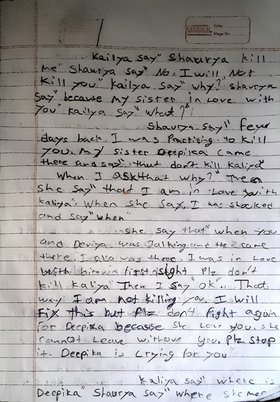 Date
Page No.
Kailya say" Shaurya kill
me" Shaurya say" No, I will Not
kill you" Kailya say" why? Shaurya
say" because my sister in Love with
you" Kailya say" what?!
Shaurya say" Few
days back, I was Practicing to kill
you, my sister Deepika came
there and say" that don't kill Kailya
When I ask that why? Then
she say" that I am in Love with
Kaliya" When she say, I was shocked
and say" when"
she say that" when you
and Deviya was Talking and
there, I also was there. I was in Love
with him in first sight. Plz don't
kill Kaliya" Then I say" OK. That
why I am not killing you. I will
Fix this but Plz don't fight again
for Deepika because she Love you, she
cannot Leave without you, Plz stop
it. Deepika is crying for you
Kaliya say" where is
Deepika" Shaurya say" where she